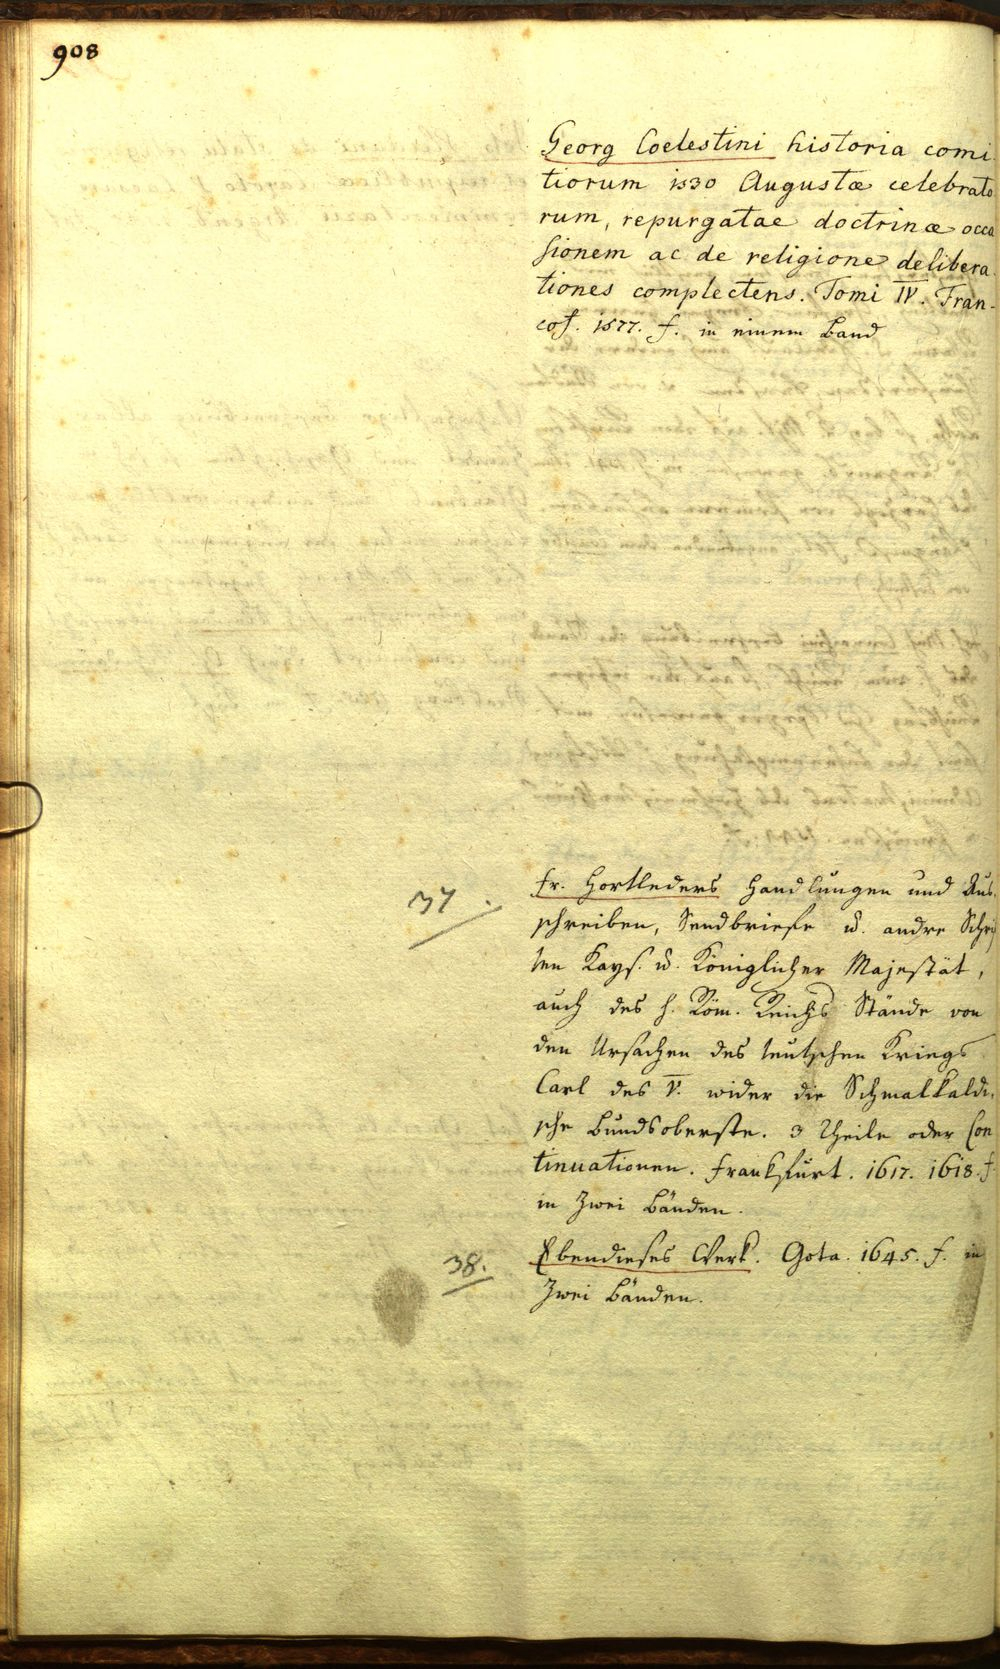 908
Georg Coelestini historia comi
tiorum 1530 Augustæ celebrato
rum, repurgatae doctrinæ occa
sionem ac de religione delibera
tiones complectens. Tomi IV. Fran-
cof. 1577. f. in einem Band
37.
Fr. Hortleders Handlungen und Aus
schreiben, Sendbriefe u. andre Schrif
ten Kays. u. Königlicher Majestät,
auch des H. Röm. Reichs Stände von
den Ursachen des teutschen Kriegs
Carl des V. wider die Schmalkaldi
sche Bundsoberste. 3 Theile oder Con
tinuationen. Frankfurt. 1617. 1618. f.
in Zwei Bänden.
38.
Ebendieses Werk. Gota. 1645. f. in
Zwei Bänden.